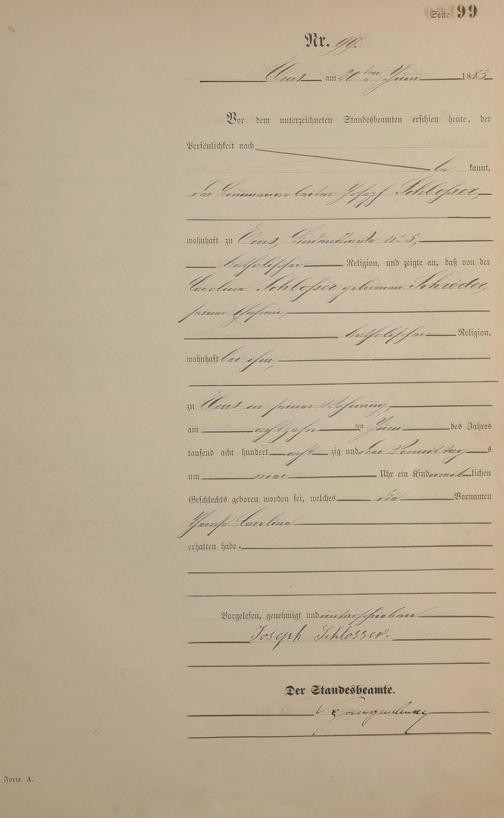 Seite 99
Nr. 99.
Ems am 20 ten Juni 1883
Vor dem unterzeichneten Standesbeamten erschien heute, der
Persönlichkeit nach
be kannt,
der Joseph Schlosser,
wohnhaft zu Ems, No 5,
katholischer Religion, und zeigte an, daß von der
Carolina Schlosser geborenen Schröder,
seiner Ehefrau,
katholischer Religion,
wohnhaft bei ihm,
zu Ems in seiner Wohnung,
am achtzehn ten Juni des Jahres
tausend acht hundert acht zig und drei Vormittag s
um neun Uhr ein Kind weiblichen
Geschlechts geboren worden sei, welches die Vornamen
Carolina
erhalten habe.
Vorgelesen, genehmigt und unterschrieben
Joseph Schlosser.
Der Standesbeamte.
Form. A.